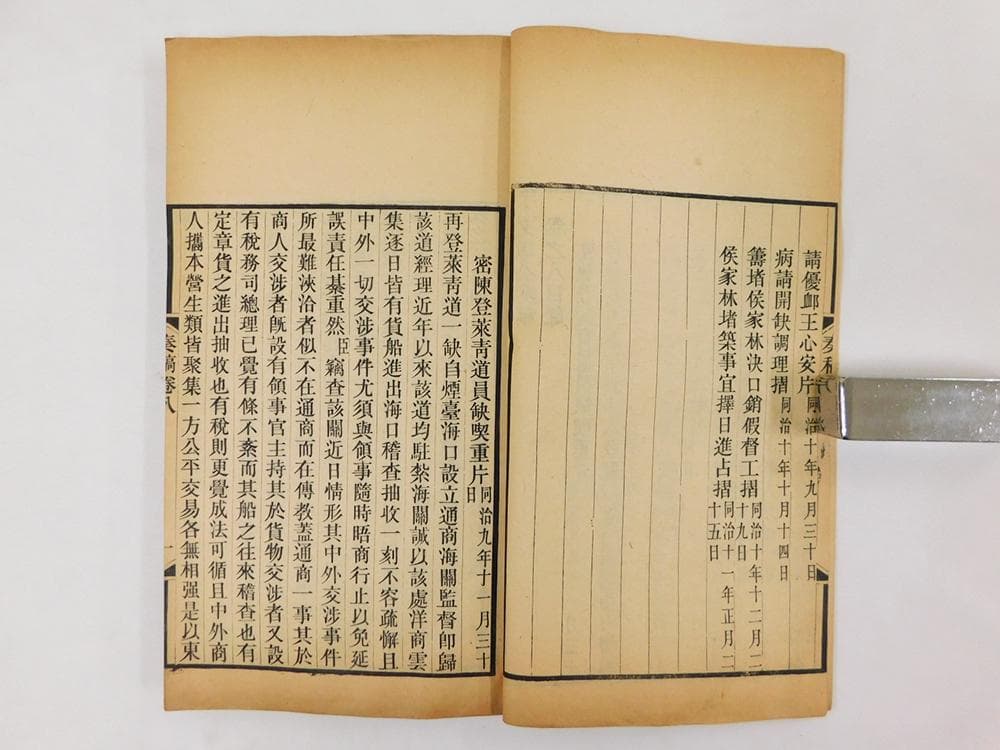 請優卹王心安片同治十年九月三十日
病請開缺調理摺同治十年十月十四日
籌堵侯家林決口銷假督工摺同治十年十二月二十九日
侯家林堵築事宜擇日進占摺同治十一年正月二十五日
密陳登萊青道員缺喫重片同治九年十一月三十日
再登萊青道一缺自煙臺海口設立通商海關監督卽歸
該道經理近年以來該道均駐紮海關誠以該處洋商雲
集逐日皆有貨船進出海口稽查抽收一刻不容疏懈且
中外一切交涉事件尤須與領事隨時晤商行止以免延
誤責任綦重然臣竊查該關近日情形其中外交涉事件
所最難浹洽者似不在通商而在傳教蓋通商一事其於
商人交涉者旣設有領事官主持其於貨物交涉者又設
有稅務司總理已覺有條不紊而其船之往來稽查也有
定章貨之進出抽收也有稅則更覺成法可循且中外商
人攜本營生類皆聚集一方公平交易各無相强是以東
奏稿卷八
一